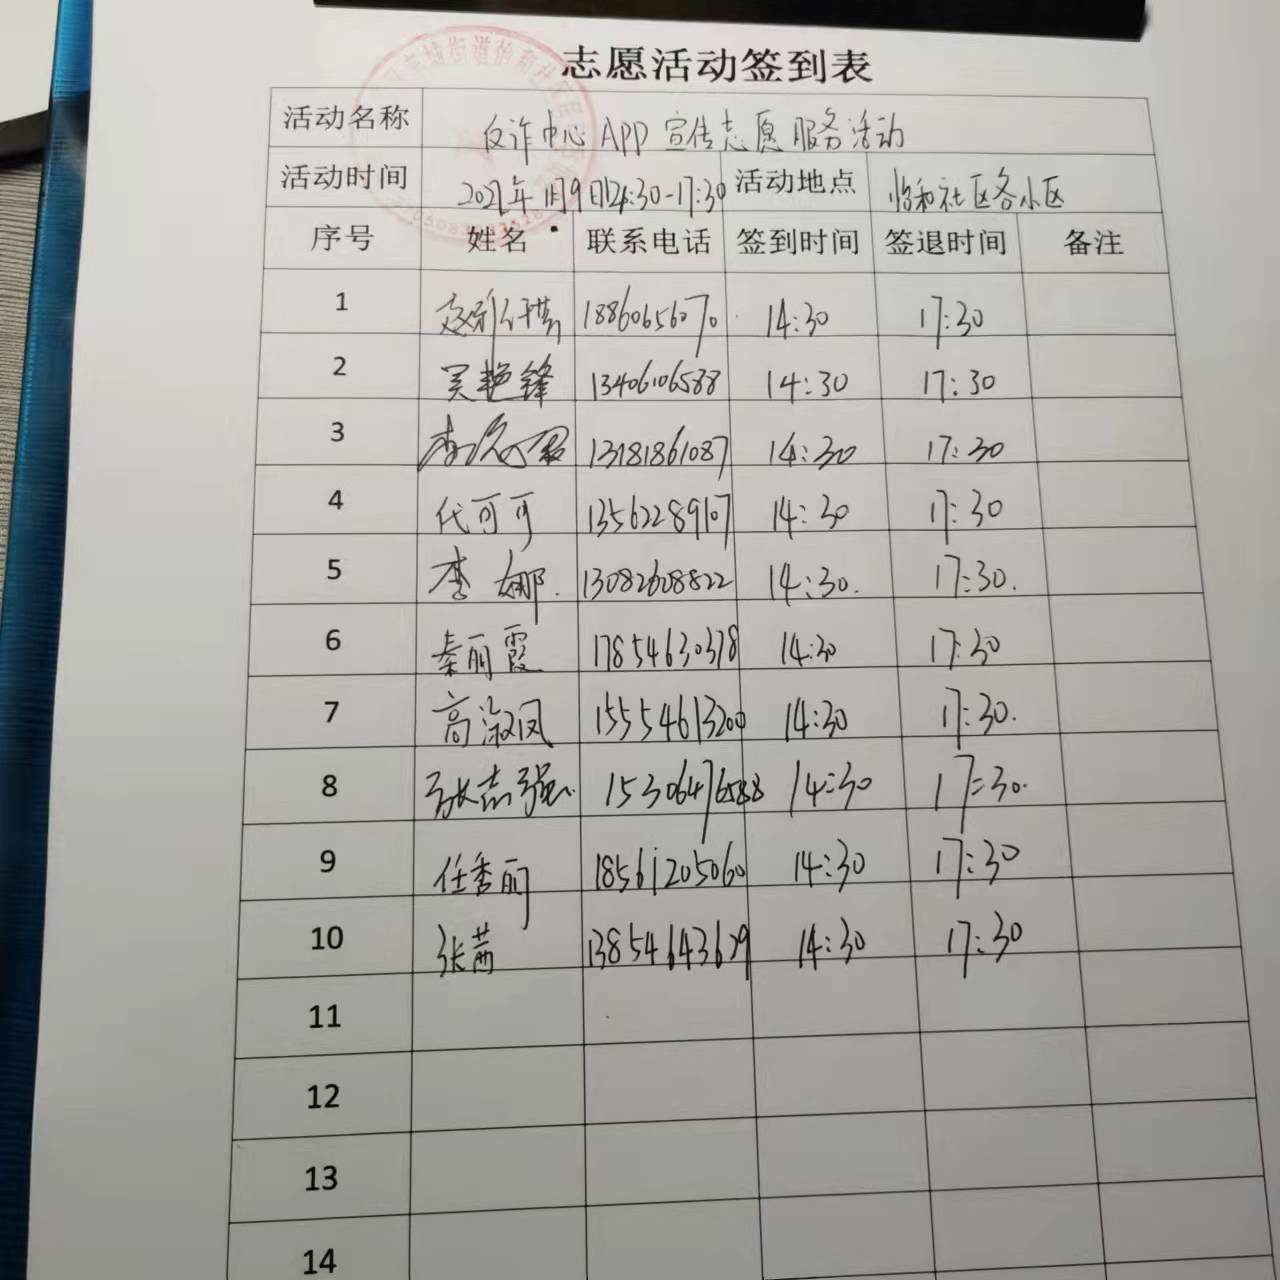 志愿活动签到表
活动名称 反诈中心APP宣传志愿服务活动
活动时间 月9日14:30-17:30 活动地点 怡和社区各小区
序号 姓名 联系电话 签到时间 签退时间 备注
1 18860656070 14:30 17:30
2 吴艳锋 13406106588 14:30 17:30
3 13181861087 14:30 17:30
4 代可可 13562289107 14:30 17:30
5 李娜. 13082608822 14:30. 17:30.
6 秦丽霞 17854630378 14:30 17:30
7 高淑凤 15554613200 14:30 17:30.
8 张志强 15306476588 14:30 17:30.
9 任秀丽 18561205060 14:30 17:30
10 张茜 13854643679 14:30 17:30
11
12
13
14